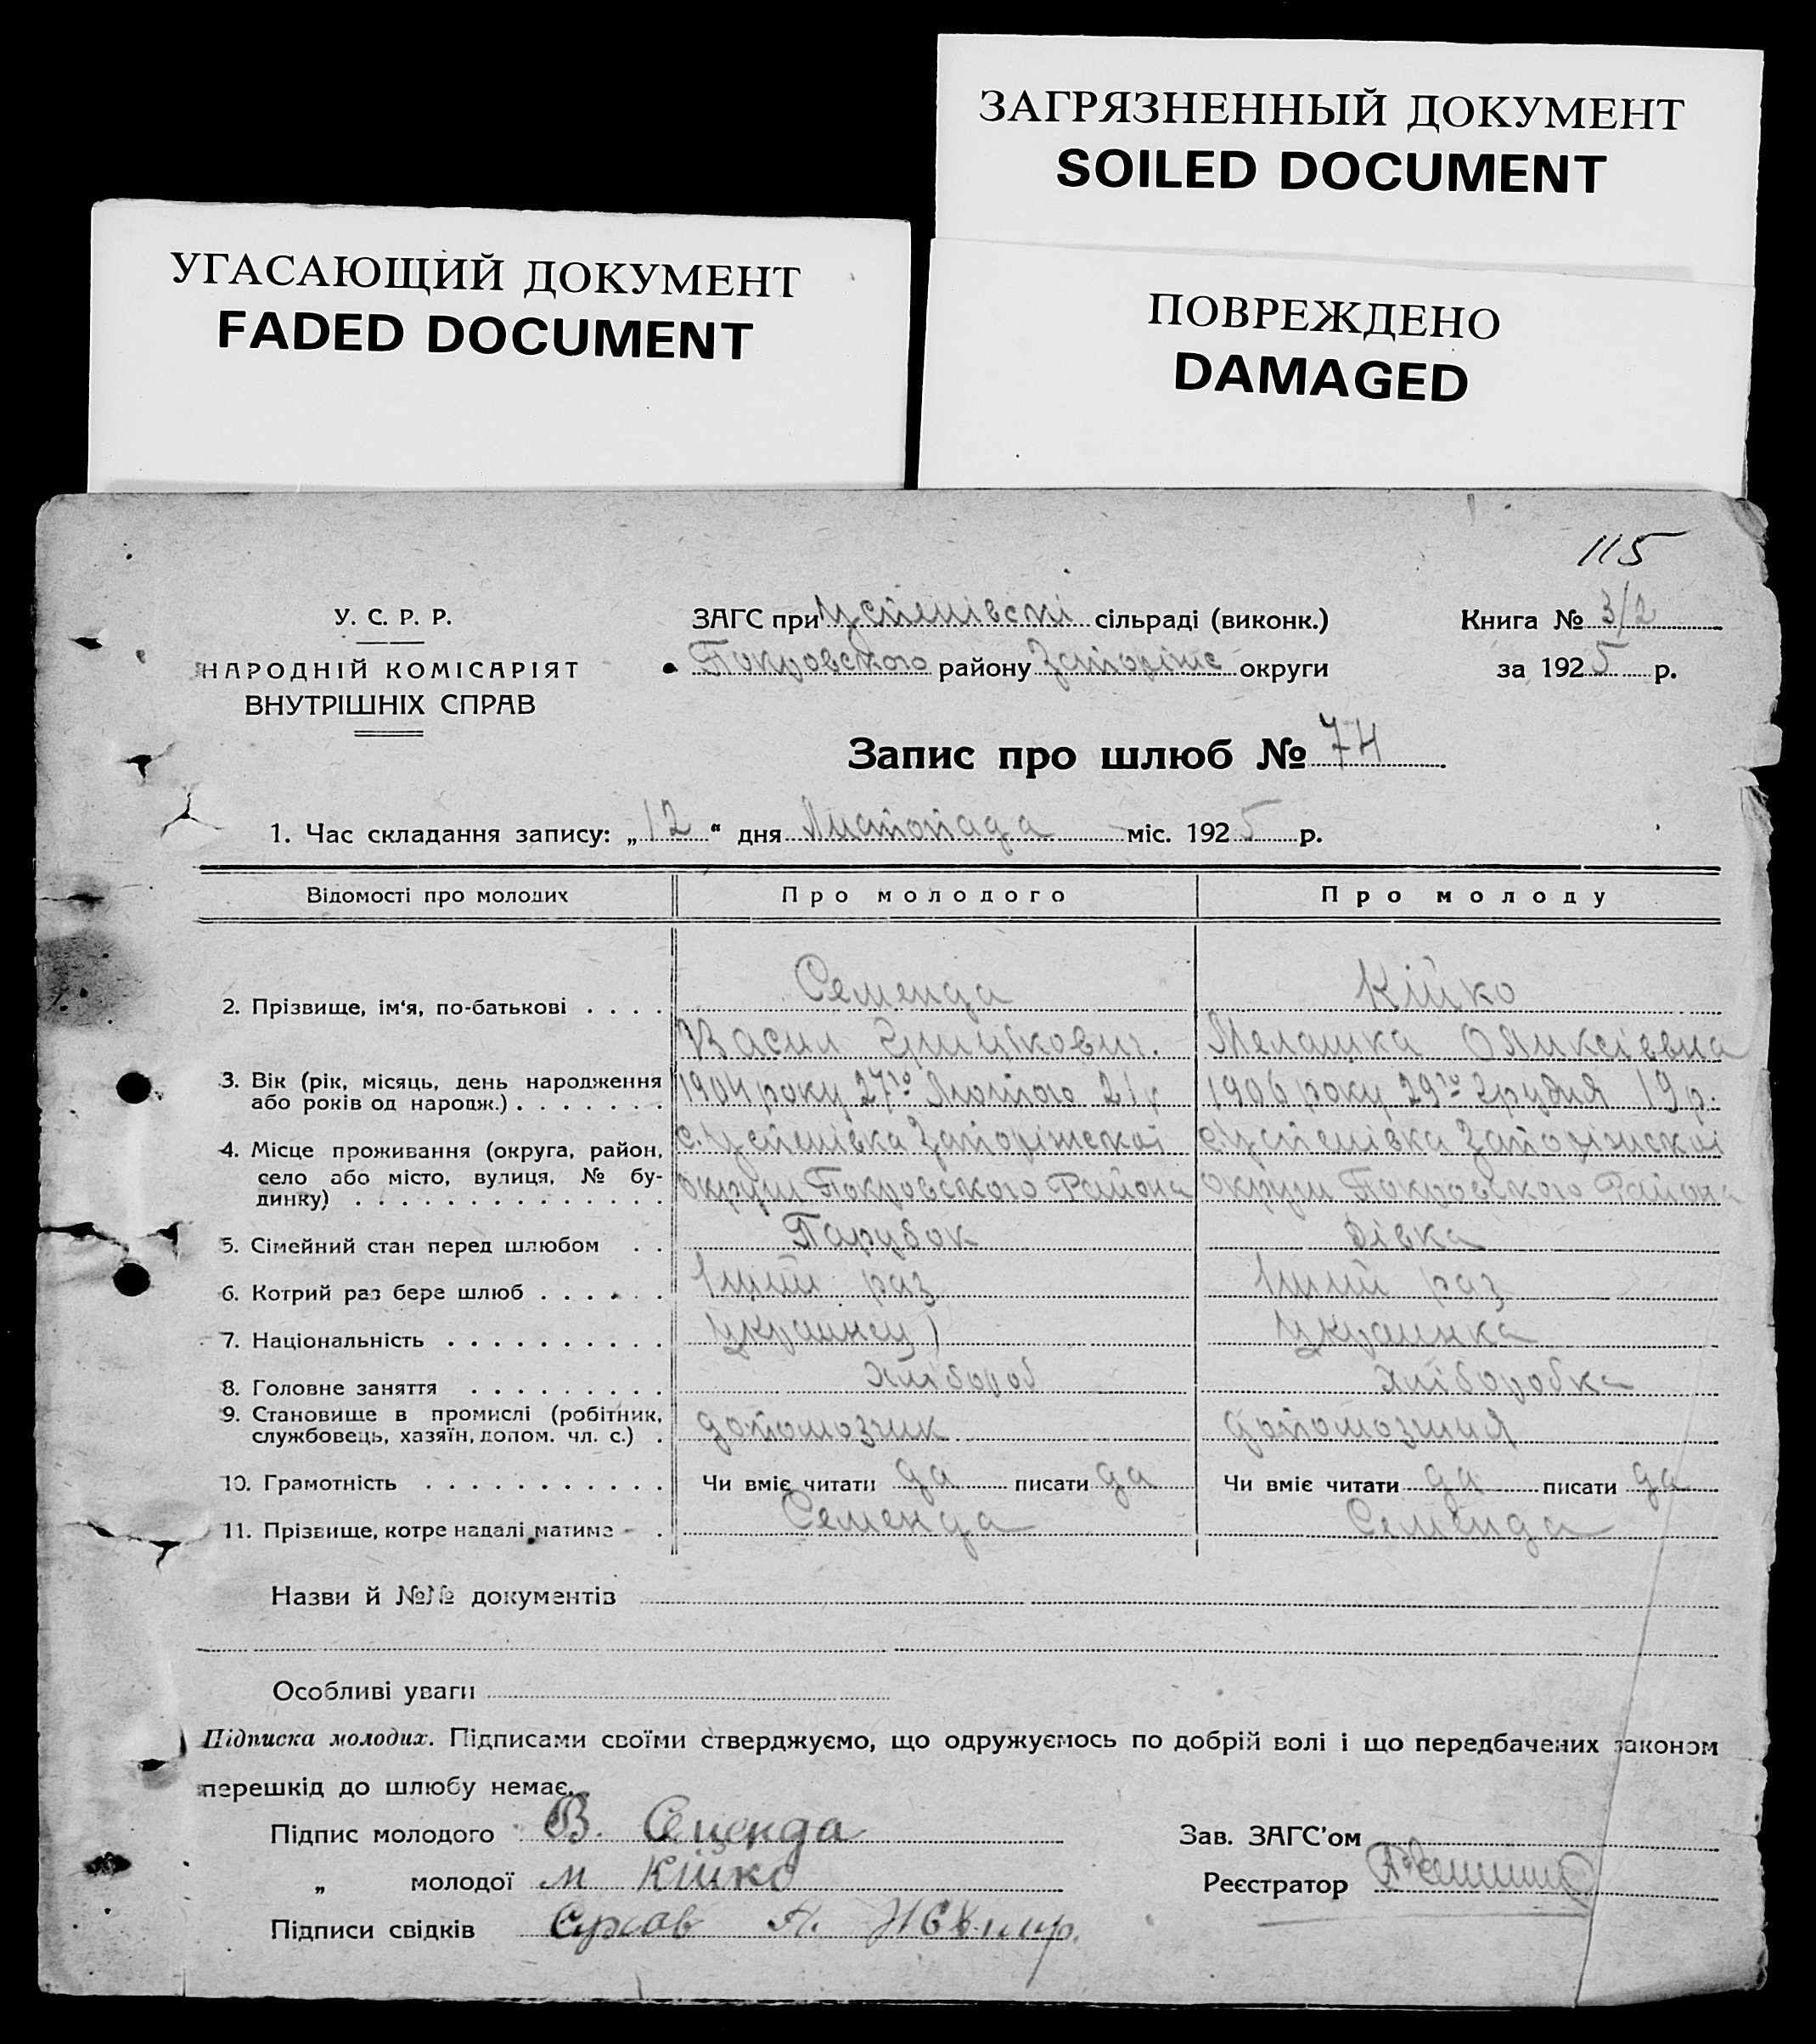 ЗАГРЯЗНЕННЫЙ ДОКУМЕНТ
SOILED DOCUMENT
УГАСАЮЩИЙ ДОКУМЕНТ
FADED DOCUMENT
ПОВРЕЖДЕНО
DAMAGED
115
У. С. Р. Р.
НАРОДНІЙ КОМІСАРІЯТ
ВНУТРІШНІХ СПРАВ
ЗАГС при Успенівскі сільраді (виконк.)
Покровського району Запоріжс округи
Книга № 3/2
за 1925 р.
Запис про шлюб № 74
1. Час складання запису: „12“ дня Листопада міс. 1925 р.
Відомості про молодих Про молодого Про молоду
2. Прізвище, ім‘я, по-батькові . . . . Семенда Кійко
Васил Грицькович. Мелашка
3. Вік (рік, місяць, день народження
або років од народж.) . . . . . . . 1904 року 27го Лютого 21 р 1906 року 29го Грудня 19 р.
4. Місце проживання (округа, район, с. Успенівка Запоріжскоі с. Успенівка Запоріжскоі
село або місто, вулиця, № бу-
динку) . . . . . . . . . . . . . . округи Покровського Района округи Покровського Района
5. Сімейний стан перед шлюбом . . Парубок Дівка
6. Котрий раз бере шлюб . . . . . . 1ший раз 1ший раз
7. Національність . . . . . . . . . . Украинец Украинка
8. Головне заняття . . . . . . . . . хлібороб хліборобка
9. Становище в промислі (робітник,
службовець, хазяїн, допом. чл. с.) . допомозчик
10. Грамотність . . . . . . . . . . . Чи вміє читати да писати да Чи вміє читати да писати да
11. Прізвище, котре надалі матиме . Семенда Семенда
Назви й №№ документів
Особливі уваги
Підписка молодих. Підписами своїми стверджуємо, що одружуємось по добрій волі і що передбачених законом
перешкід до шлюбу немає.
Підпис молодого В. Семенда Зав. ЗАГС’ом
„ молодої М Кійко Реєстратор
Підписи свідків